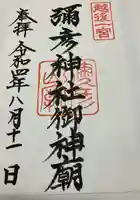 越後一宮
奉拝
彌彦神社御神廟
令和四年八月十一日